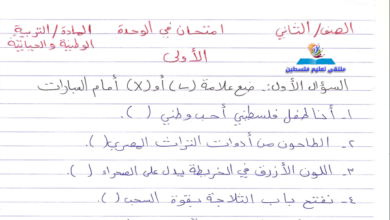 الصف/ الثاني امتحان في الوحدة المادة/ التربية
الأولى الوطنية والحياتية
ملتقى تعليم فلسطين
السؤال الأول:- ضع علامة (✓) أو (X) أمام العبارات
١- أنا طفل فلسطيني أحب وطني ( ).
٢- الطاحون من أدوات التراث المصري ( ).
٣- اللون الأزرق في الخريطة يدل على الصحراء ( ).
٤- نفتح باب الثلاجة بقوة السحب ( ).